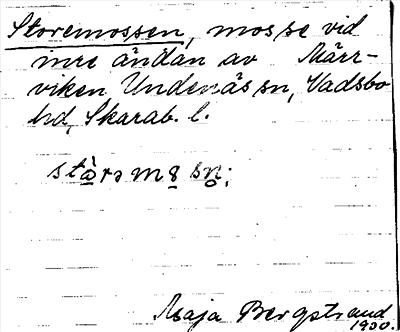 Storemossen, mosse vid
inre ändan av Märr-
viken Undenäs sn, Vadsbo
hd, Skarab. l.
Maja Bergstrand
1930.